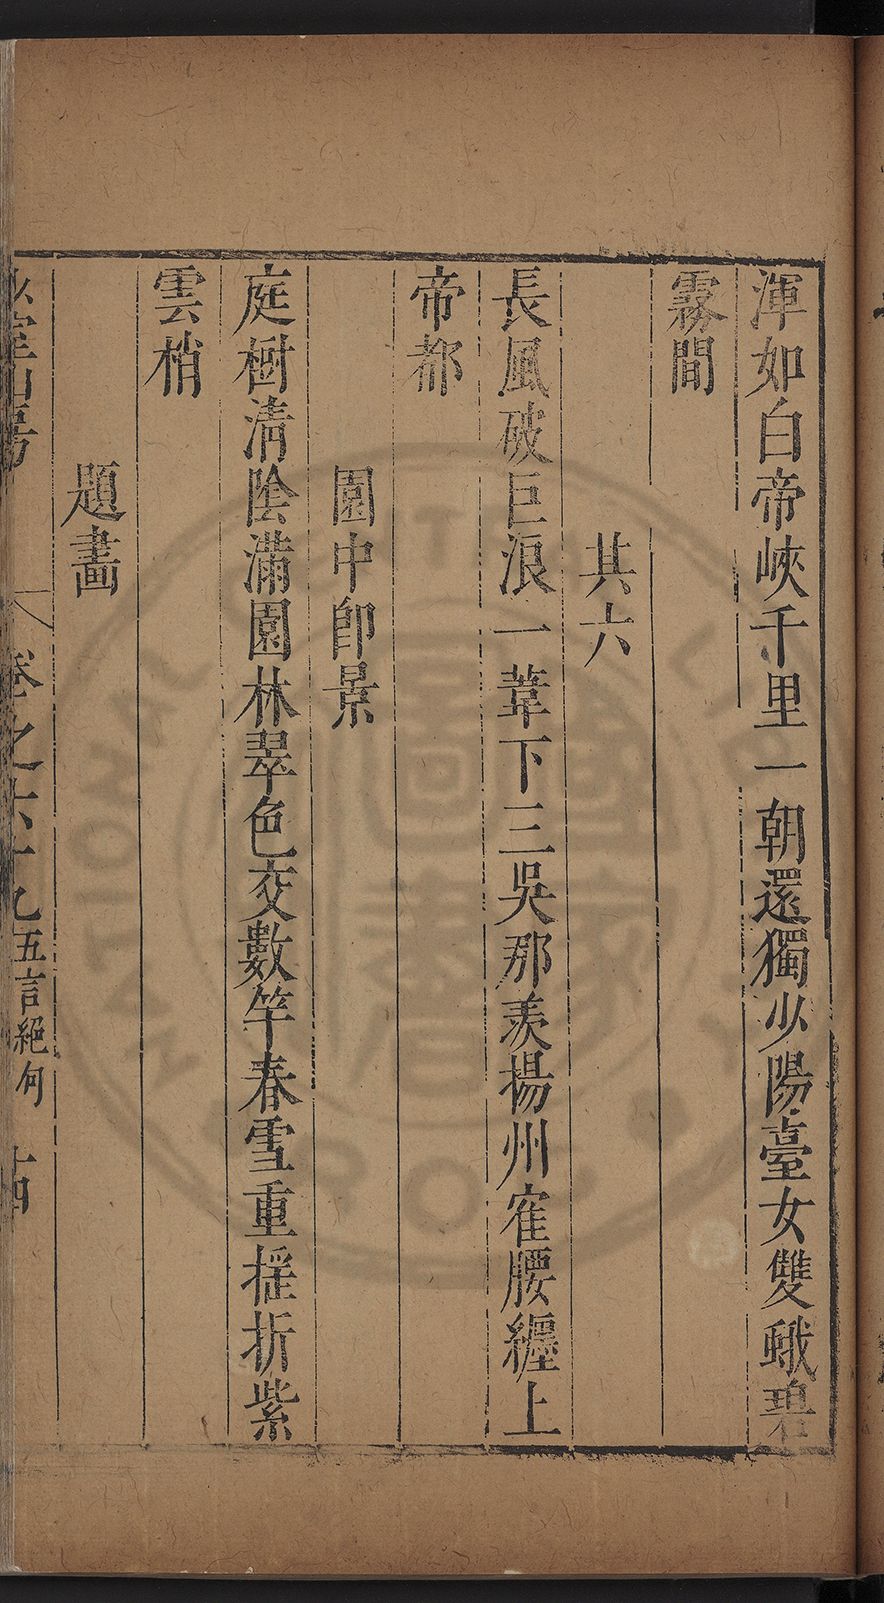 渾如白帝峽千里一朝還獨少陽臺女雙蛾碧
霧間
其六
長風破巨浪一葦下三吳那羨揚州寉腰纏上
帝都
園中卽景
庭樹清陰滿園林翠色交數竿春雪重摇折紫
雲梢
題畫
少室山房 卷之六十九五言絕句 十四